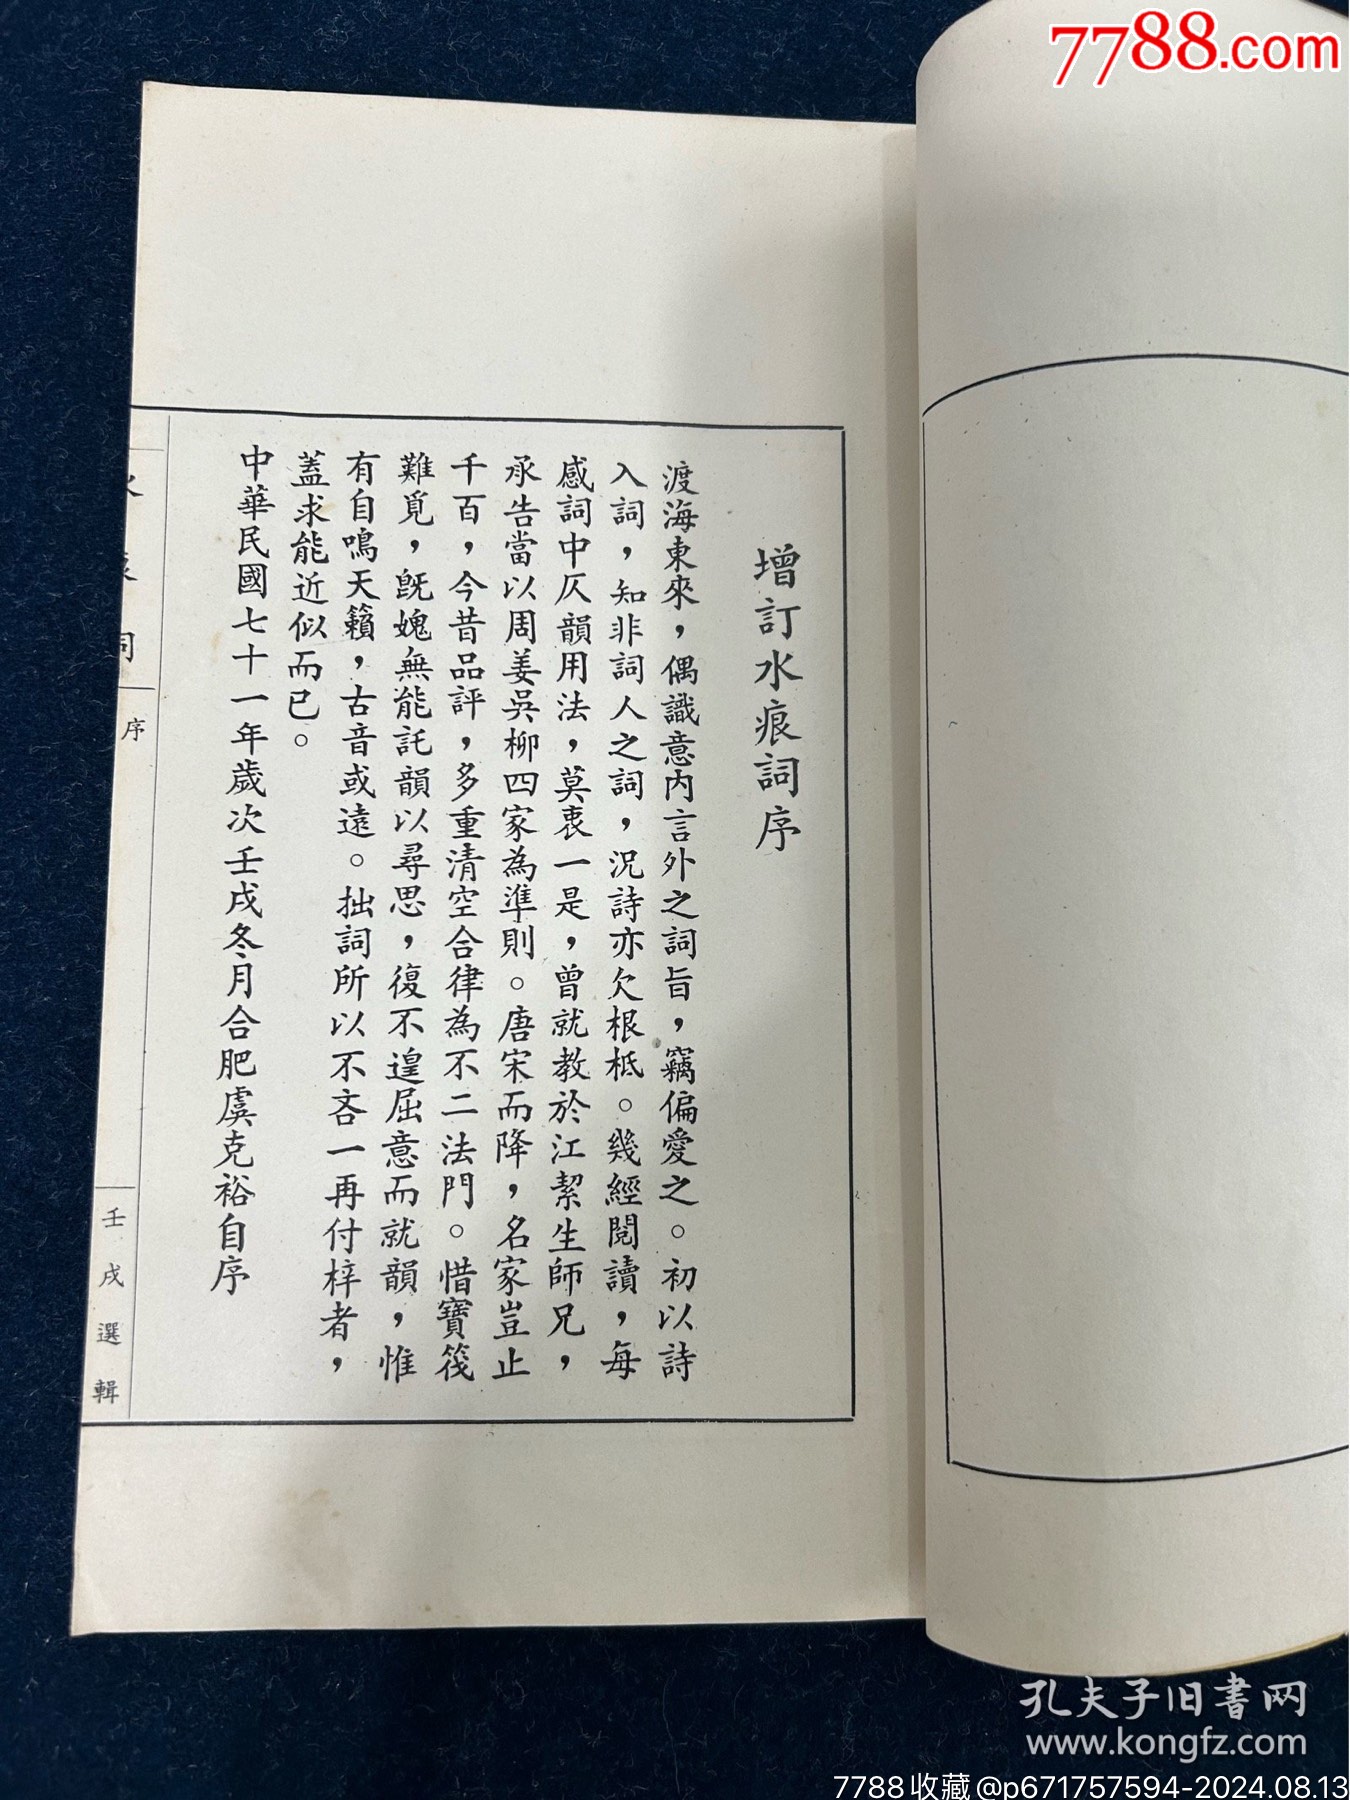 7788.com
增訂水痕詞序
渡海東來，偶識意內言外之詞旨，竊偏愛之。初以詩
入詞，知非詞人之詞，況詩亦欠根柢。幾經閱讀，每
感詞中仄韻用法，莫衷一是，曾就教於江絜生師兄，
承告當以周姜吳柳四家為準則。唐宋而降，名家豈止
千百，今昔品評，多重清空合律為不二法門。惜寶筏
難覓，旣媿無能託韻以尋思，復不遑屈意而就韻，惟
有自鳴天籟，古音或遠。拙詞所以不吝一再付梓者，
蓋求能近似而已。
中華民國七十一年歲次壬戌冬月合肥虞克裕自序
序
壬戌選輯
孔夫子旧书网
www.kongfz.com
7788收藏@p671757594-2024.08.13